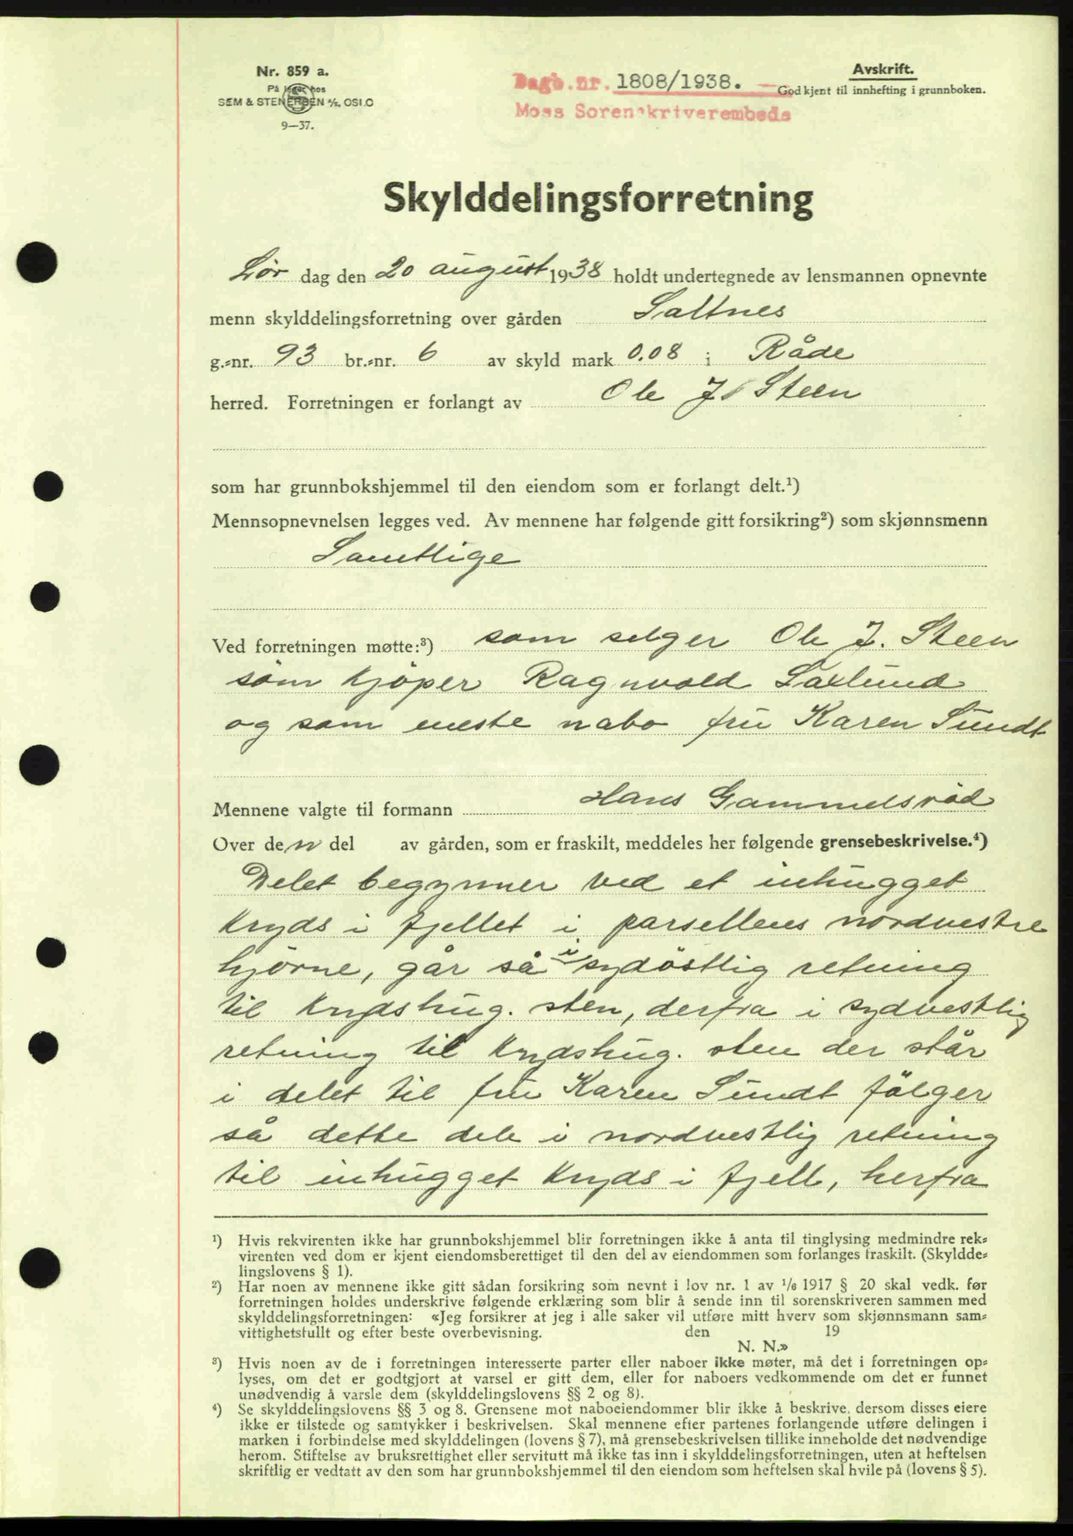 Nr. 859 a.
På lager hos
SEM & STENERSEN A/S, OSLO
9—37.
Dagb.nr. 1808/1938.
Moss Sorenskriverembeds
Avskrift.
Godkjent til innhefting i grunnboken.
Skylddelingsforretning
Lør dag den 20 august 1938 holdt undertegnede av lensmannen opnevnte
menn skylddelingsforretning over gården Saltnes
g.-nr. 93 br.-nr. 6 av skyld mark 0.08 i Råde
herred. Forretningen er forlangt av Ole J. Steen
som har grunnbokshjemmel til den eiendom som er forlangt delt.¹)
Mennsopnevnelsen legges ved. Av mennene har følgende gitt forsikring²) som skjønnsmenn
Samtlige
Ved forretningen møtte:³) som selger Ole J. Steen
som kjöper Ragnvald Saxlund
og som eneste nabo fru Karen Sundt
Mennene valgte til formann Hans Gammelsröd
Over den del av gården, som er fraskilt, meddeles her følgende grensebeskrivelse.⁴)
Delet begynner ved et inhugget
kryds i fjellet i parsellens nordvestre
hjörne, går så i sydöstlig retning
til krydshug. sten, derfra i sydvestlig
retning til krydshug. sten der står
i delet til fru Karen Sundt fölger
så dette dele i nordvestlig retning
til inhugget kryds i fjell, herfra
¹) Hvis rekvirenten ikke har grunnbokshjemmel blir forretningen ikke å anta til tinglysing medmindre rek-
virenten ved dom er kjent eiendomsberettiget til den del av eiendommen som forlanges fraskilt. (Skyldde-
lingslovens § 1).
²) Har noen av mennene ikke gitt sådan forsikring som nevnt i lov nr. 1 av 1/6 1917 § 20 skal vedk. før
forretningen holdes underskrive følgende erklæring som blir å sende inn til sorenskriveren sammen med
skylddelingsforretningen: «Jeg forsikrer at jeg i alle saker vil utføre mitt hverv som skjønnsmann sam-
vittighetsfullt og efter beste overbevisning. den 19
N. N.»
³) Hvis noen av de i forretningen interesserte parter eller naboer ikke møter, må det i forretningen op-
lyses, om det er godtgjort at varsel er gitt dem, eller for naboers vedkommende om det er funnet
unødvendig å varsle dem (skylddelingslovens §§ 2 og 8).
⁴) Se skylddelingslovens §§ 3 og 8. Grensene mot naboeiendommer blir ikke å beskrive, dersom disses eiere
ikke er tilstede og samtykker i beskrivelsen. Skal mennene efter partenes forlangende utføre delingen i
marken i forbindelse med skylddelingen (lovens § 7), må grensebeskrivelsen tillike inneholde det nødvendige
herom. Stiftelse av bruksrettighet eller servitutt må ikke tas inn i skylddelingsforretningen, uten at heftelsen
skriftlig er vedtatt av den som har grunnbokshjemmel til den eiendom som heftelsen skal hvile på (lovens § 5).